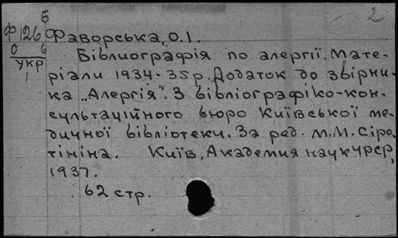 Б
2
Ф 126
0 6
укр
1
Фаворська, О.І.
Бібліографія по алергії. Мате-
ріали 1934-35р. Додаток до збірни-
ка „Алергія". З бібліографіко-кон-
сультаційного бюро Київської ме-
дичної бібліотеки. За ред. М.М. Сіро-
тініна. Київ, Академия наук УРСР,
1937.
62 стр.